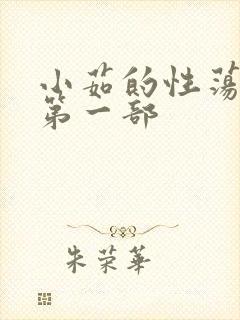 小茹的性荡
第一部
朱荣华